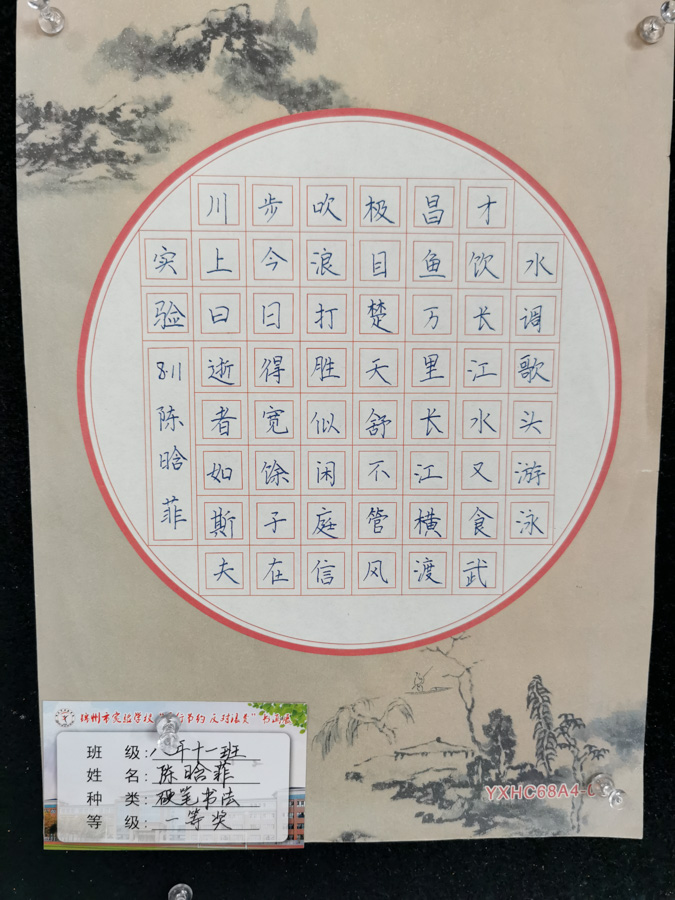 水调歌头游泳
才饮长江水又食武
昌鱼万里长江横渡
极目楚天舒不管风
吹浪打胜似闲庭信
步今日得宽馀子在
川上曰逝者如斯夫
实验
811陈晗菲
州市实验学校 行节约 反对浪费"书画展
班 级:八年十一班
姓 名:陈晗菲
种 类:硬笔书法
等 级:一等奖
YXHC68A4-